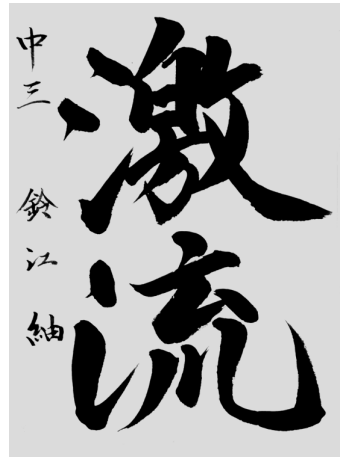 激流
中三 鈴江 紬